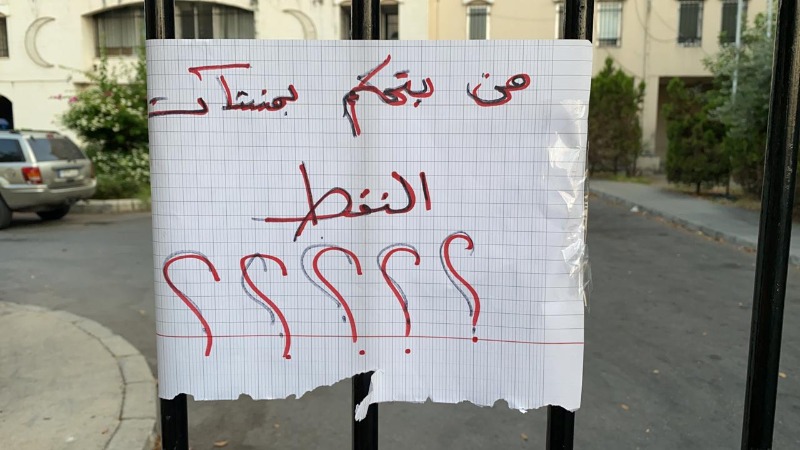 من يتحكم بمنشآت
النفط
؟؟؟؟؟